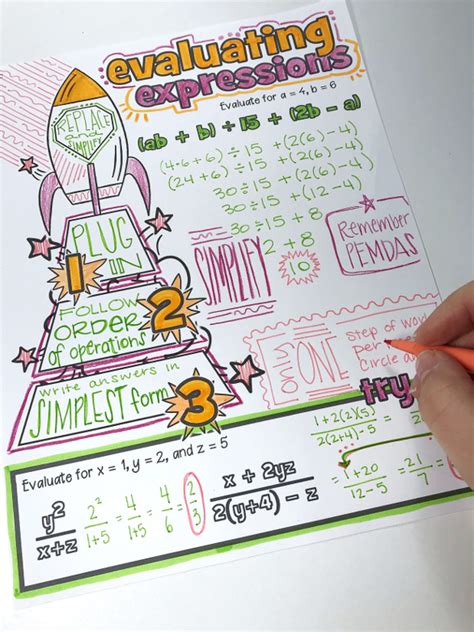 evaluating
expressions
Evaluate for a = 4, b = 6
(ab + b) ÷ 15 + (2b - a)
(4·6+6) ÷ 15 + (2(6)-4)
(24+6) ÷ 15 + (2(6)-4)
30 ÷ 15 + (2(6)-4)
30 ÷ 15 + (12-4)
30 ÷ 15 + 8
2 + 8
10
REPLACE
and
SIMPLIFY
PLUG
IN
1
FOLLOW
ORDER
of operations
2
write answers in
SIMPLEST form
3
SIMPLIFY
Remember
PEMDAS
ONLY
ONE
step of work
per
Circle
try
Evaluate for x = 1, y = 2, and z = 5
y²
x+z
2²/1+5 = 4/1+5 = 4/6 = 2/3
x + 2yz
2(y+4) - z
1+2(2)(5)
2(2+4)-5 =
= 1+20/12-5 = 21/7 =